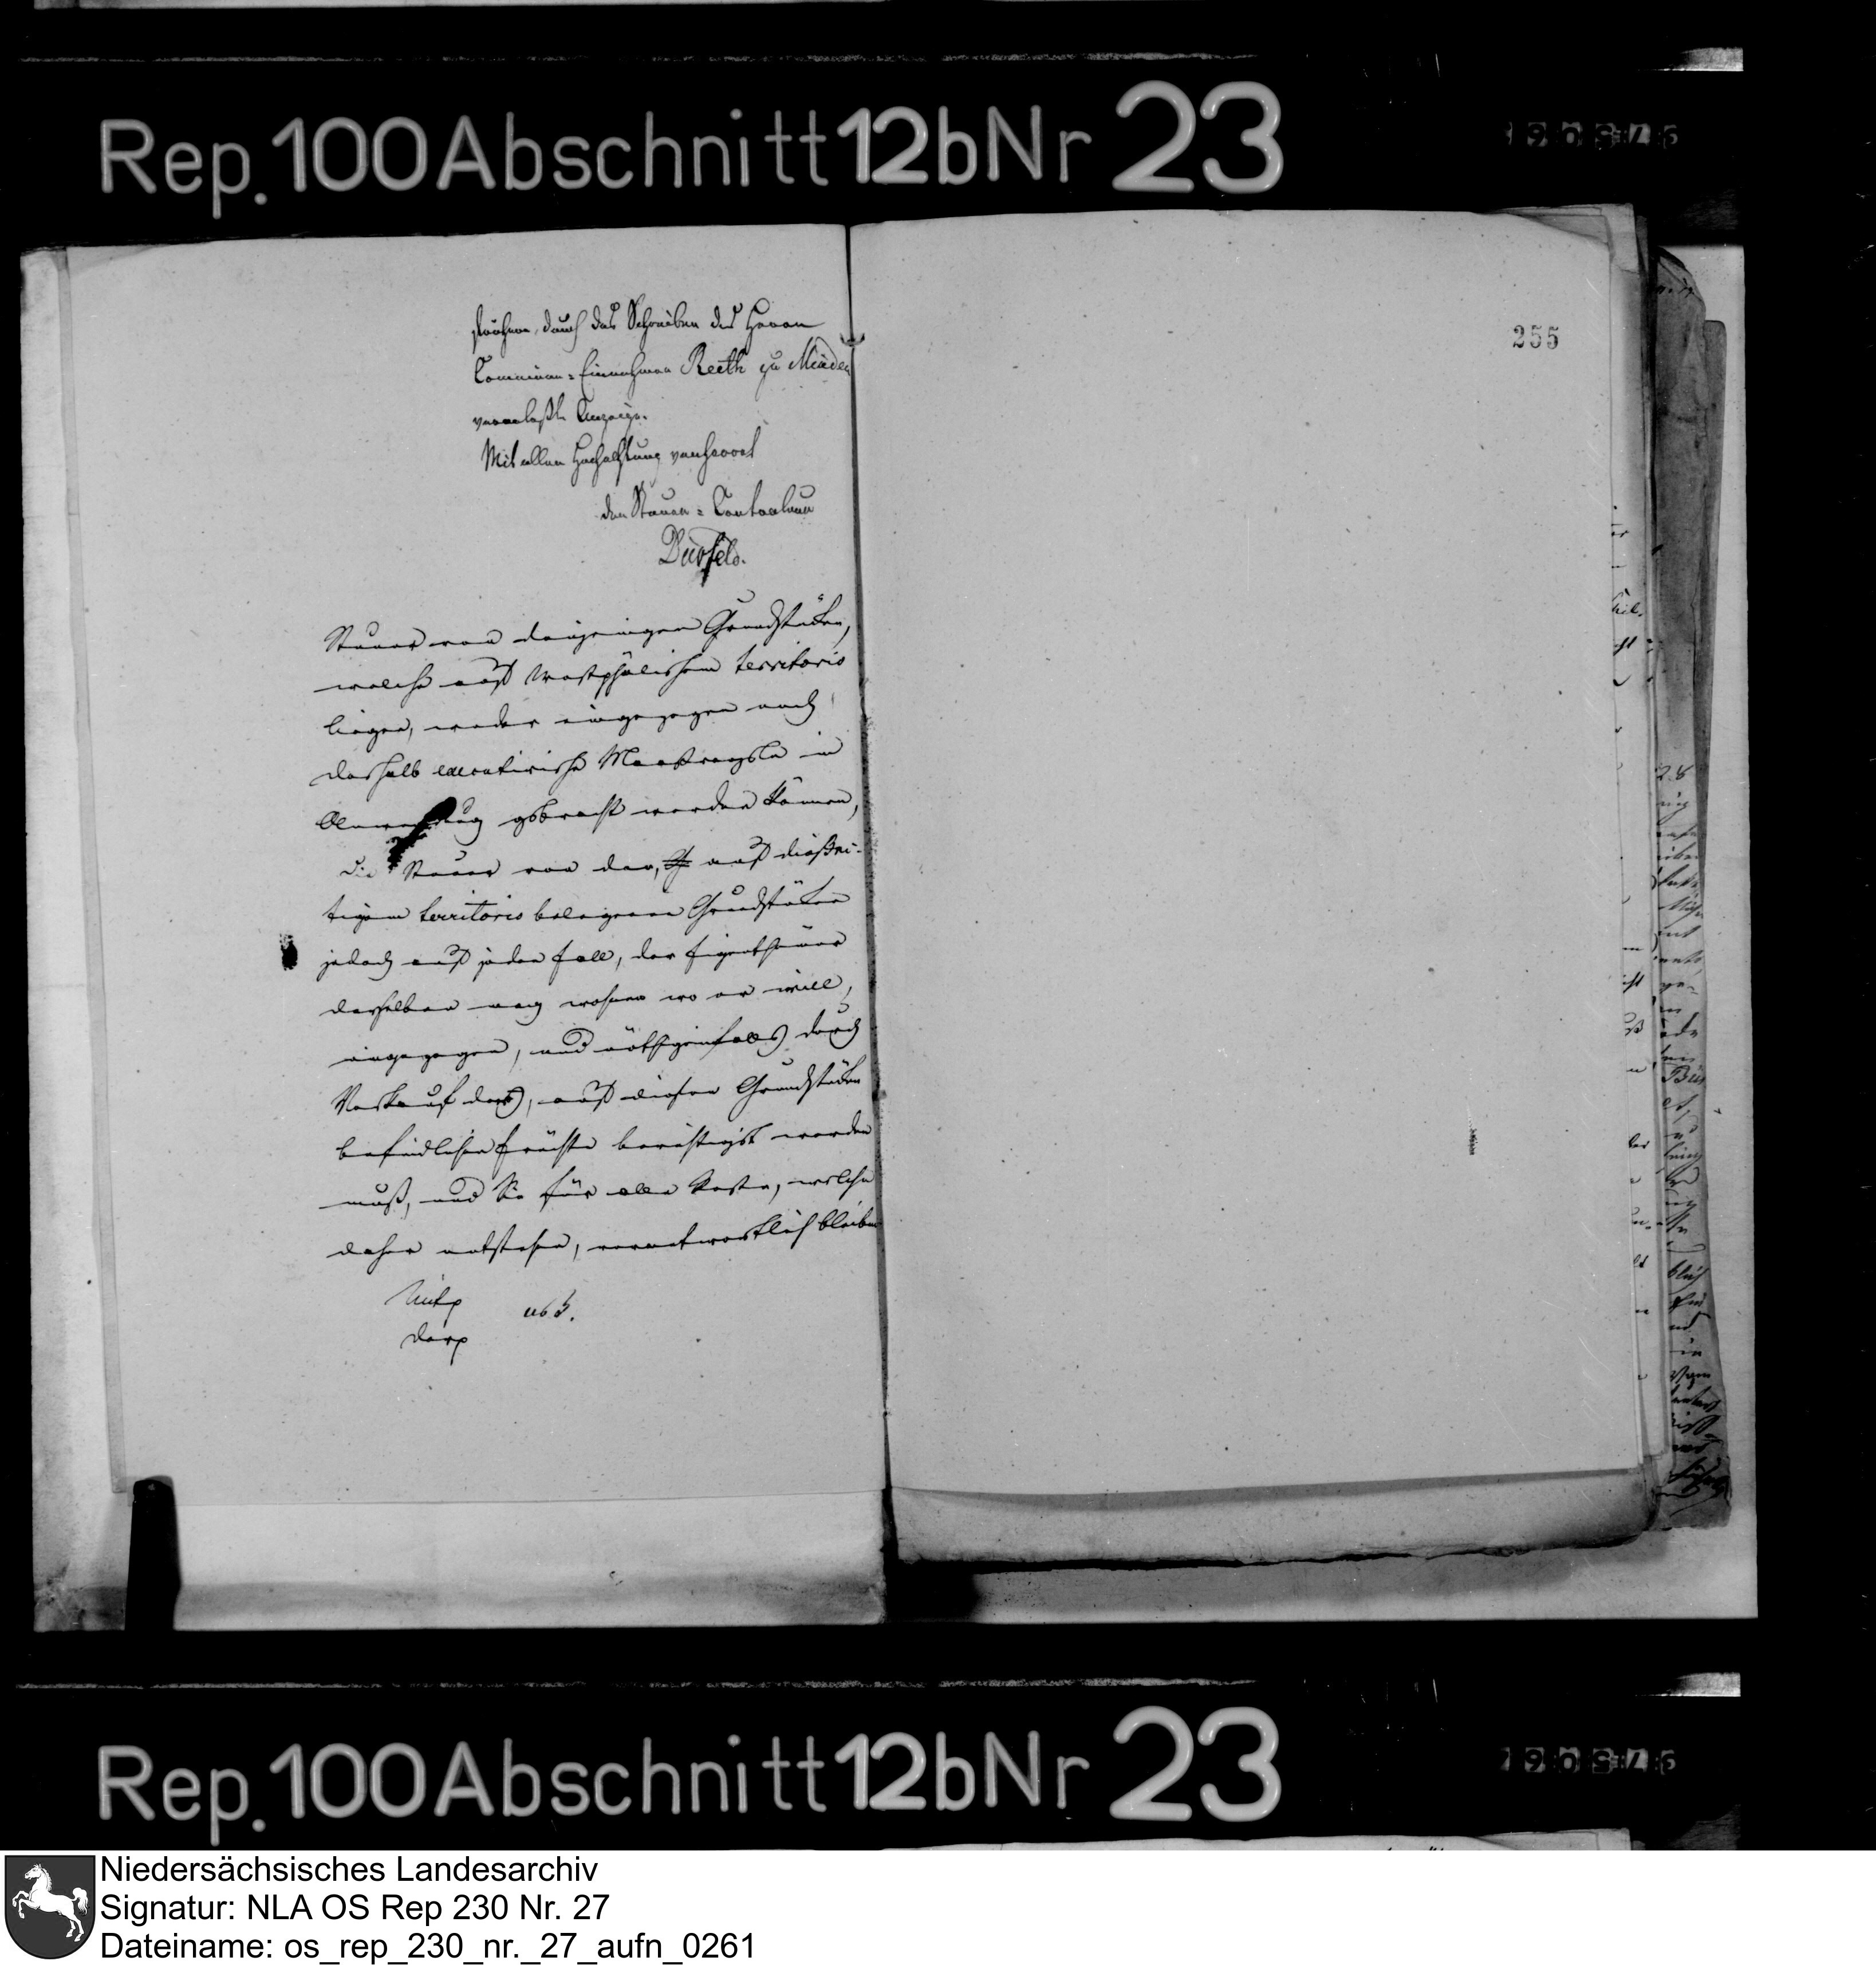 Rep. 100 Abschnitt 12b Nr 23
255
durch das Schreiben des Herrn
Commun-Einnehmer Reeth zu Minden
veranlaßte Anzeige.
Mit aller Hochachtung verharret
der Steuer-Controleur
Steuer von denjenigen Grundstücken,
welche auf Westphälischem territorio
liegen, weder eingezogen noch
deshalb executivische Maaßregeln in
Anwendung gebracht werden können,
die Steuer von den, auf dießsei-
tigem territorio belegenen Grundstücken
jedoch auf jeden Fall, der Eigenthümer
derselben mag wohnen wo er will,
eingezogen, und nöthigenfalls durch
Verkauf der, auf diesen Grundstücken
befindlichen Früchte berichtigt werden
muß, und Sie für alle Kosten, welche
daher entstehen, verantwortlich bleiben
Rep. 100 Abschnitt 12b Nr 23
Niedersächsisches Landesarchiv
Signatur: NLA OS Rep 230 Nr. 27
Dateiname: os_rep_230_nr._27_aufn_0261